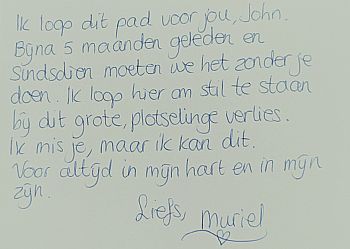 Ik loop dit pad voor jou, John.
Bijna 5 maanden geleden en
Sindsdien moeten we het zonder je
doen. Ik loop hier om stil te staan
bij dit grote, plotselinge verlies.
Ik mis je, maar ik kan dit.
Voor altijd in mijn hart en in mijn
zijn.
Liefs, Muriel